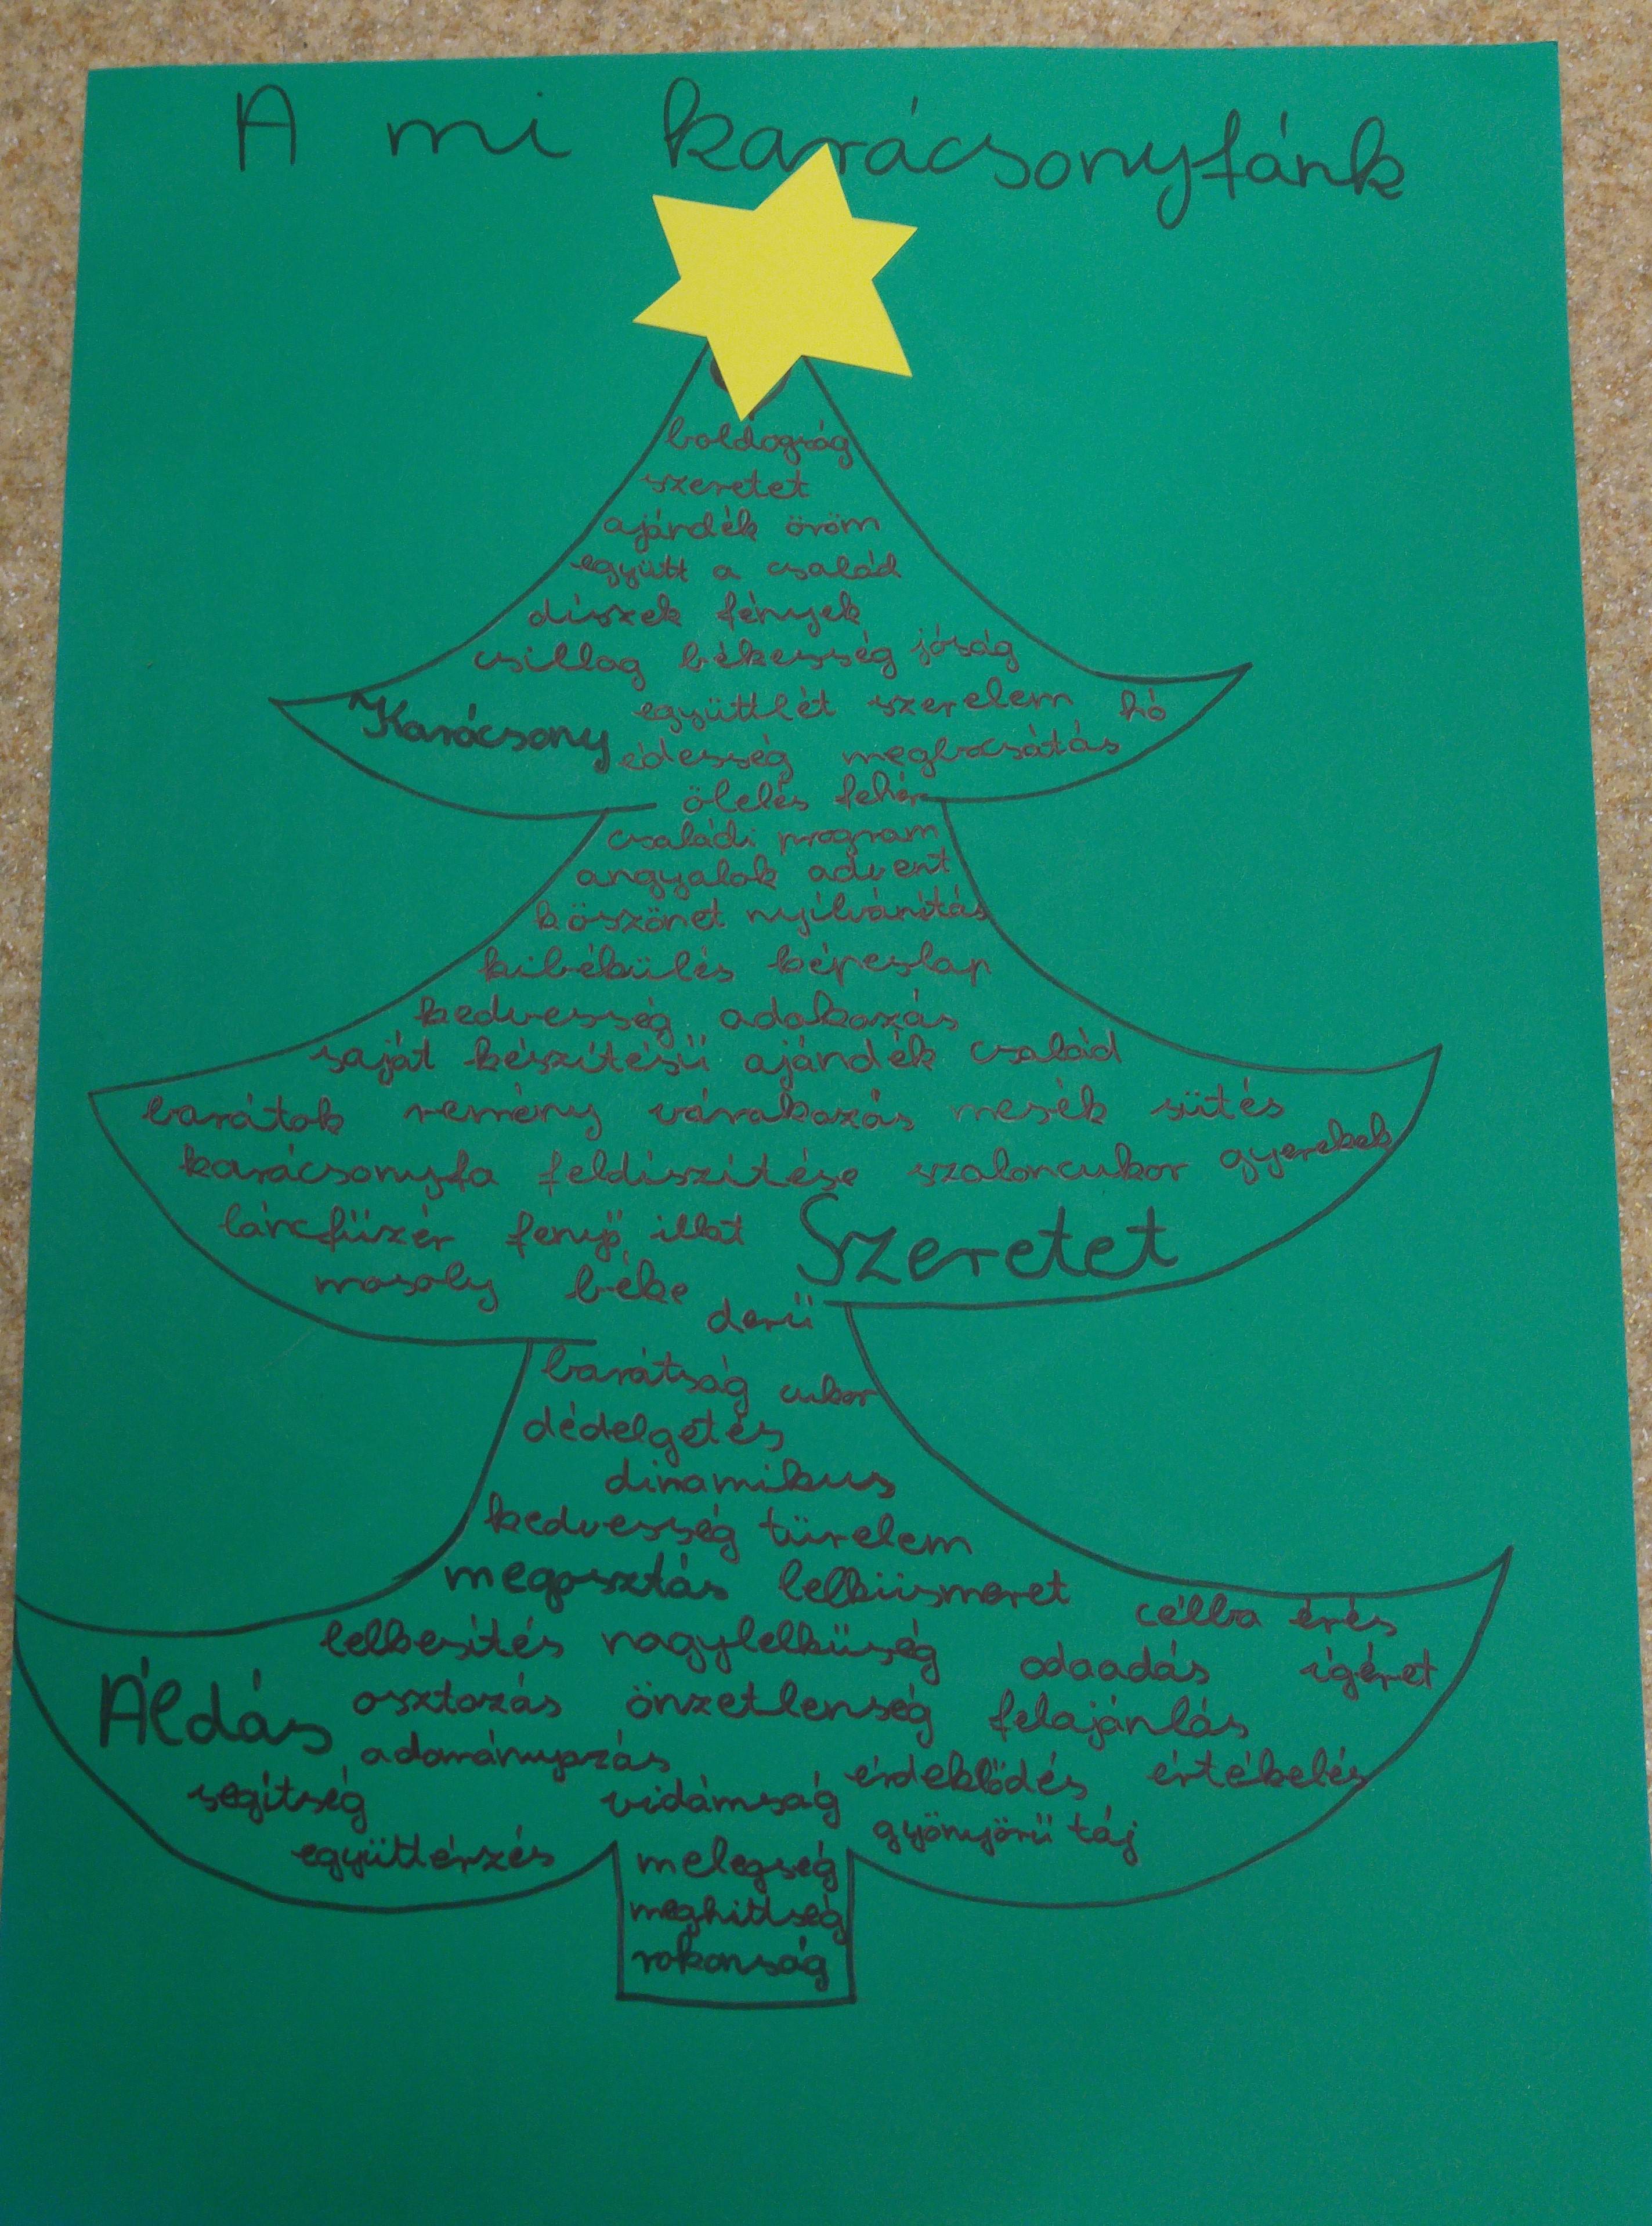 A mi karácsonyfánk
boldogság
szeretet
ajándék öröm
együtt a család
díszek fények
csillag békesség jóság
Karácsony együttlét szerelem hó
édesség megbocsátás
ölelés fehér
családi program
angyalok advent
köszönet nyilvánítás
kibékülés képeslap
kedvesség adakozás
saját készítésű ajándék család
barátok remény várakozás mesék sütés
karácsonyfa feldíszítése szaloncukor gyerekek
láncfűzér fenyő illat Szeretet
mosoly béke
derű
barátság cukor
dédelgetés
dinamikus
kedvesség türelem
megosztás lelkiismeret célba érés
lelkesítés nagylelkűség odaadás ígéret
Áldás osztozás önzetlenség felajánlás
adományozás érdeklődés értékelés
segítség vidámság gyönyörű táj
együttérzés
melegség
meghittség
rokonság